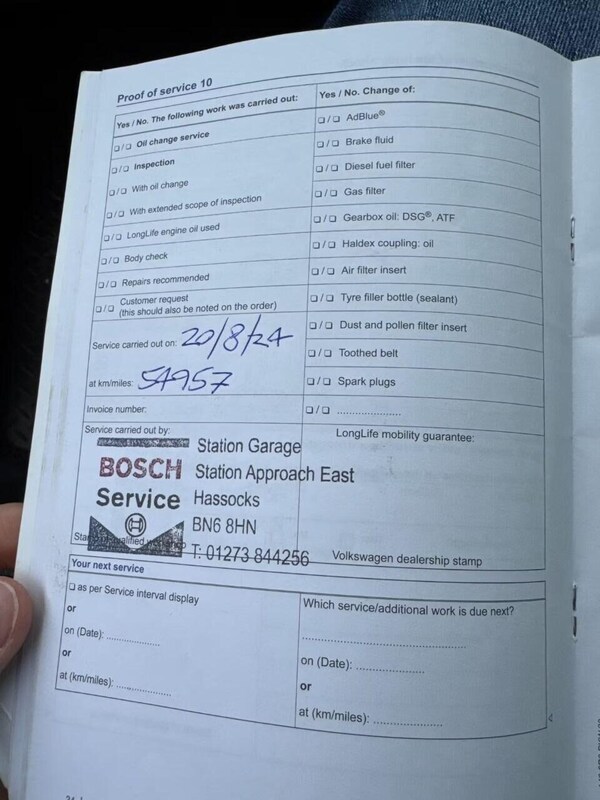 Proof of service 10
Yes / No. The following work was carried out:
❏ / ❏ Oil change service
❏ / ❏ Inspection
❏ / ❏ With oil change
❏ / ❏ With extended scope of inspection
❏ / ❏ LongLife engine oil used
❏ / ❏ Body check
❏ / ❏ Repairs recommended
❏ / ❏ Customer request
(this should also be noted on the order)
Service carried out on: 20/8/24
at km/miles: 54957
Invoice number:
Yes / No. Change of:
❏ / ❏ AdBlue®
❏ / ❏ Brake fluid
❏ / ❏ Diesel fuel filter
❏ / ❏ Gas filter
❏ / ❏ Gearbox oil: DSG®, ATF
❏ / ❏ Haldex coupling: oil
❏ / ❏ Air filter insert
❏ / ❏ Tyre filler bottle (sealant)
❏ / ❏ Dust and pollen filter insert
❏ / ❏ Toothed belt
❏ / ❏ Spark plugs
❏ / ❏ ....................
Service carried out by:
BOSCH
Service
Station Garage
Station Approach East
Hassocks
BN6 8HN
T: 01273 844256
LongLife mobility guarantee:
Volkswagen dealership stamp
Your next service
❏ as per Service interval display
or
on (Date): .................
or
at (km/miles): .................
Which service/additional work is due next?
................................................
on (Date): ....................
or
at (km/miles): ....................